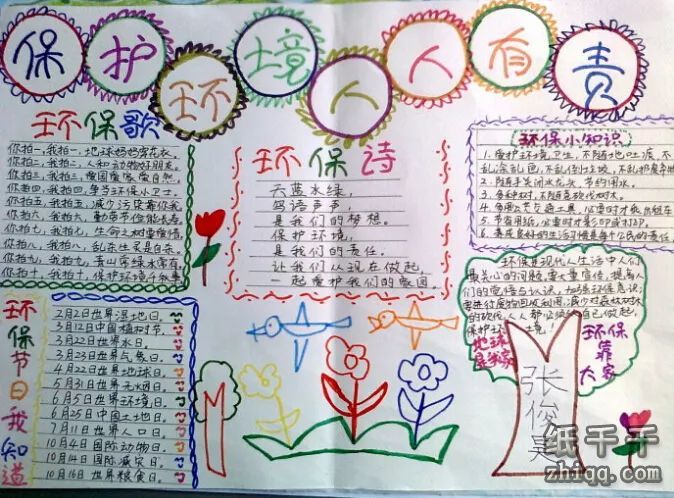 保护环境人人有责
环保歌
你拍一,我拍一,地球妈妈穿花衣。
你拍二,我拍二,人和动物好朋友。
你拍三,我拍三,
你拍四,我拍四,争当环保小卫士。
你拍五,我拍五,减少污染
你拍六,我拍六,勤俭节约能长寿。
你拍七,我拍七,生命之树要爱惜。
你拍八,我拍八,乱在生灵是自杀。
你拍九,我拍九,青山绿水常有。
你拍十,我拍十,保护环境
环保诗
天蓝水绿,
鸟语声声,
是我们的梦想。
保护环境,
是我们的责任。
让我们从现在做起,
一起爱护我们的家园。
环保小知识
1.爱护环境卫生,不随地吐痰,不
乱涂乱色,不乱倒垃圾,不乱
2.随手关闭水龙头,节约用水。
3.多种树,不随意砍伐树木。
4.多乘公交交通工具,必要时才乘出租车
5.节省用纸,必要时才影印或打印。
6.养成良好的生活习惯是每个公民的责任。
环保是现代人生活中人们
最关心的问题,要大量宣传,提高人
们的觉悟与认识,加强环保意识,
要进行废物回收利用,减少对森林树木
的砍伐,人人都必须从自己做起,
保护环境
地球是我家
环保靠大家
张俊昊
环保节日我知道
2月2日世界湿地日。
3月12日中国植树节。
3月22日世界水日。
3月23日世界气象日。
4月22日世界地球日。
5月31日世界无烟日。
6月5日世界环境日。
6月25日中国土地日。
7月11日世界人口日。
10月4日国际动物日。
10月14日国际减灾日。
10月16日世界粮食日。
纸千千
zhiqq.com